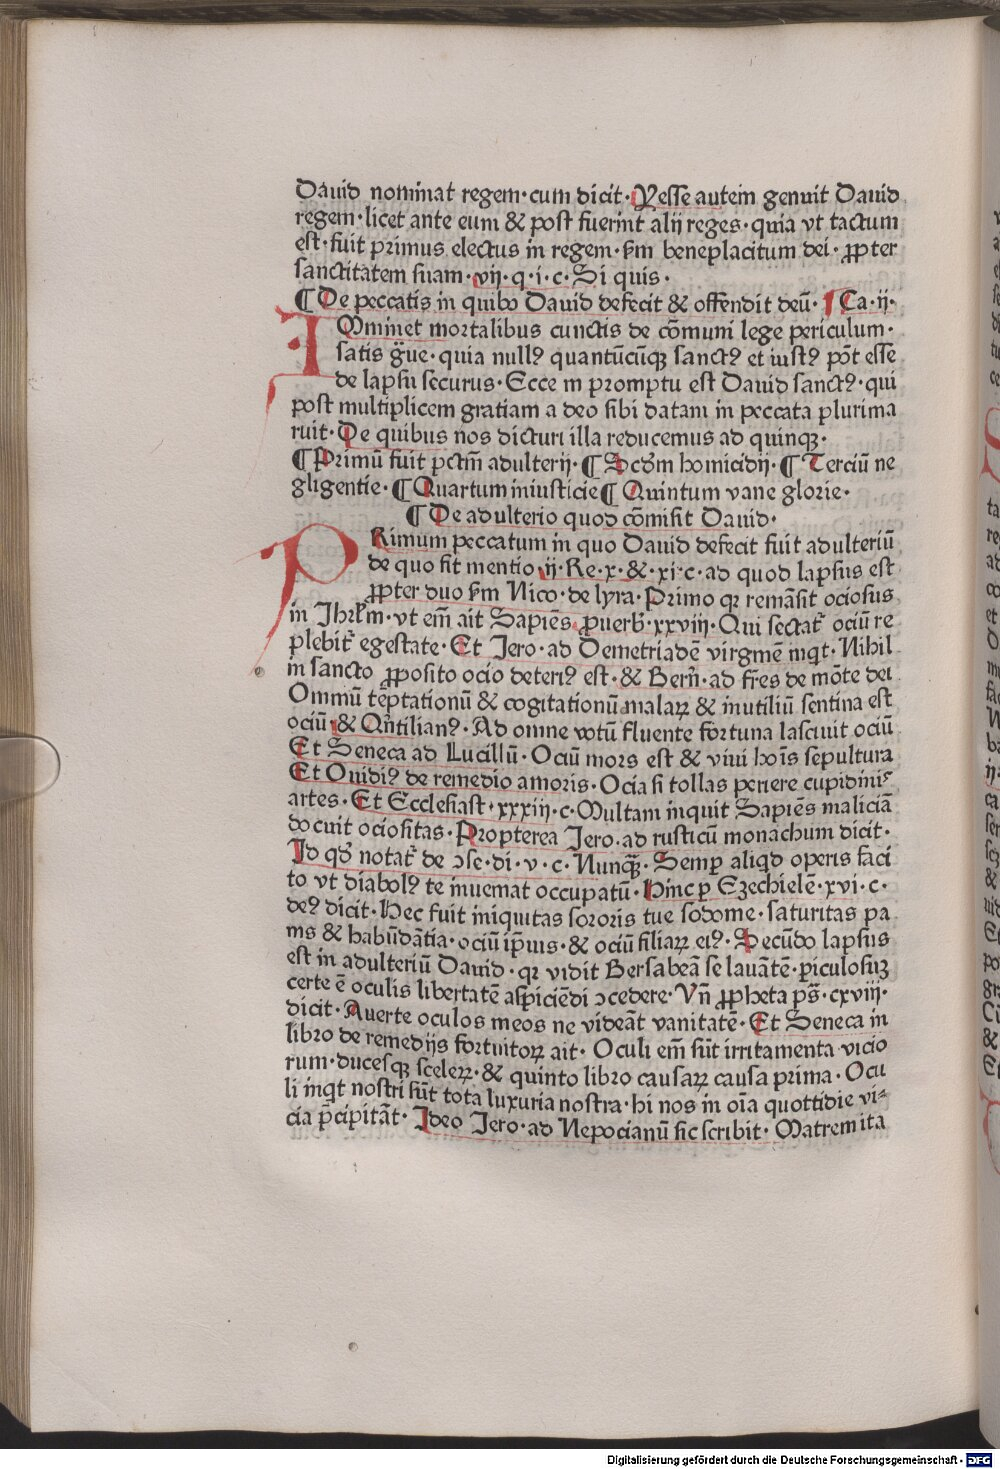 Dauid nominat regem·cum dicit·Yesse autem genuit Dauid
regem·licet ante eum & post fuerint alij reges·quia vt tactum
est·fuit primus electus in regem·ẜm beneplacitum dei·ꝓpter
sanctitatem suam·vij·q·i·c·Si quis·
¶De peccatis in quibꝰ Dauid defecit & offendit deū· Ca·ij·
IMminet mortalibus cunctis de cōmuni lege periculum·
satis g̈ue·quia nullꝰ quantūcūqꝫ sanctꝰ et iustꝰ pōt esse
de lapsu securus·Ecce in promptu est Dauid sanctꝰ·qui
post multiplicem gratiam a deo sibi datam in peccata plurima
ruit·De quibus nos dicturi illa reducemus ad quinqꝫ·
¶Primū fuit pctm̄ adulterij·¶Scd̄m homicidij·¶Terciū ne
gligentie·¶Quartum iniusticie¶Quintum vane glorie·
¶De adulterio quod cōmisit Dauid·
PRimum peccatum in quo Dauid defecit fuit adulteriū
de quo fit mentio ij·Re·x·&·xi·c·ad quod lapsus est
ꝓpter duo ẜm Nico·de lyra·Primo qꝛ remāsit ociosus
in Jhrl̄m·vt em̄ ait Sapiēs ꝓuerb̄·xxviij·Qui sectat̄ ociū re
plebit̄ egestate·Et Jero·ad Demetriadē virginē inqt·Nihil
in sancto ꝓposito ocio deteriꝰ est·& Bern̄·ad fr̄es de mōte dei
Omniū tēptationū & cogitationū malaꝝ & inutiliū sentina est
ociū·& Qn̄tilianꝰ·Ad omne votū fluente fortuna lasciuit ociū
Et Seneca ad Lucillū·Ociū mors est & viui hoīs sepultura
Et Ouidiꝰ de remedio amoris·Ocia si tollas periere cupidinis
artes·Et Ecclesiast·xxxiij·c·Multam inquit Sapiēs maliciā
docuit ociositas·Propterea Jero·ad rusticū monachum dicit·
Id qd̄ notat̄ de ↄse·di·v·c·Nunqꝫ̄·Semꝑ aliqd operis faci
to vt diabolꝰ te inueniat occupatū·Hinc ꝑ Ezechielē·xvi·c·
deꝰ dicit·Hec fuit iniquitas sororis tue sodome·saturitas pa
nis & habūdātia·ociū ip̄ius·& ociū filiaꝝ eiꝰ·Secūdo lapsus
est in adulteriū Dauid·qꝛ vidit Bersabeā se lauātē·ꝑiculosuꝫ
certe ē oculis libertatē aspiciēdi ↄcedere·Vn̄ ꝓpheta pš·cxviij·
dicit·Auerte oculos meos ne videāt vanitatē·Et Seneca in
libro de remedijs fortuitoꝝ ait·Oculi em̄ sūt irritamenta vicio
rum·ducesqꝫ sceleꝝ·& quinto libro causaꝝ causa prima·Ocu
li inqt nostri sūt tota luxuria nostra·hi nos in oīa quottidie vi⸗
cia p̄cipitāt·Ideo Jero·ad Nepocianū sic scribit·Matrem ita
Digitalisierung gefördert durch die Deutsche Forschungsgemeinschaft · DFG